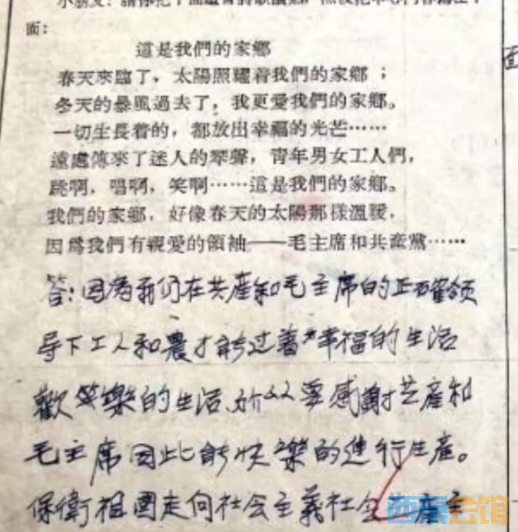 小朋友：請你把下面這首詩
面：
這是我們的家鄉
春天來臨了，太陽照耀着我們的家鄉；
冬天的暴風過去了，我更愛我們的家鄉。
一切生長着的，都放出幸福的光芒……
遠處傳來了迷人的琴聲，青年男女工人們，
跳啊，唱啊，笑啊……這是我們的家鄉。
我們的家鄉，好像春天的太陽那樣溫暖，
因爲我們有親愛的領袖——毛主席和共產黨……
答：因为我们在共產和毛主席的正確領
导下工人和農才能过着幸福的生活
歡笑樂的生活，所以要感謝共產和
毛主席因此能快樂的進行生產。
保衛祖國走向社会主義社会產主
西祠会馆